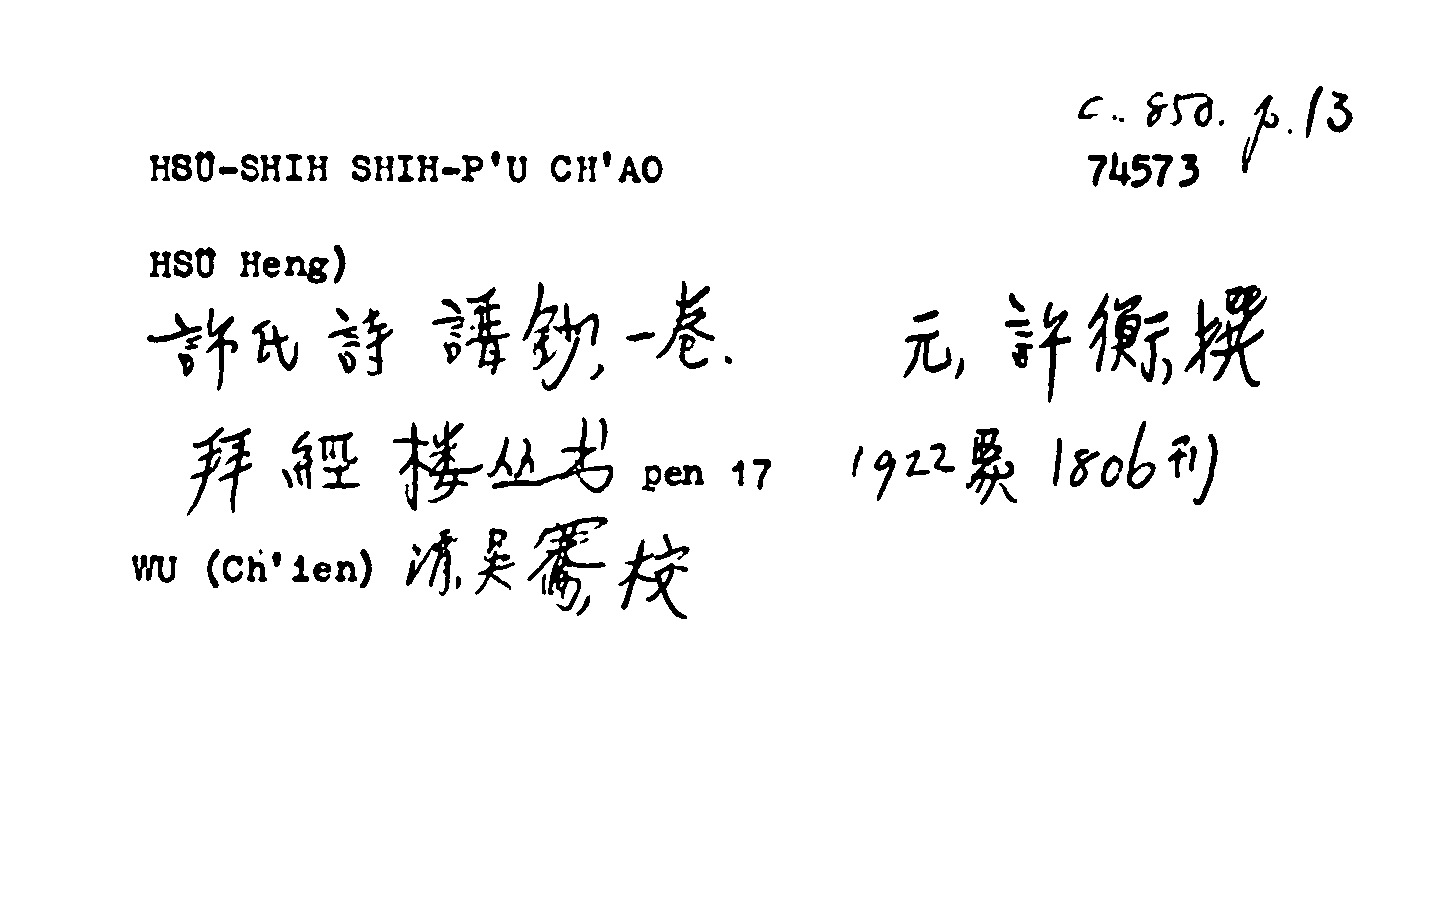 c. 850. p.13
HSÜ-SHIH SHIH-P'U CH'AO 74573
HSÜ Heng)
許氏詩譜鈔,一卷. 元,許衡,撰
拜經楼丛书 pen 17 1922 1806刊
WU (Ch'ien) 清,吴騫,按